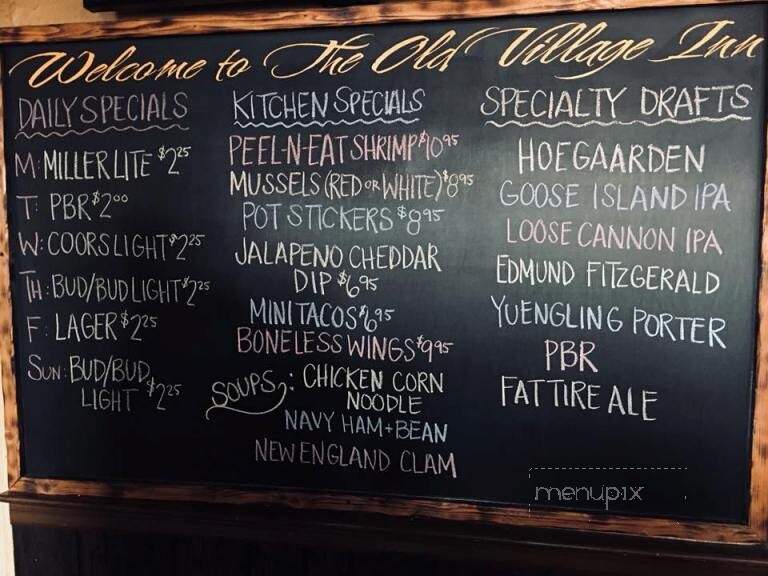 Welcome to The Old Village Inn
DAILY SPECIALS
M: MILLER LITE $2.25
T: PBR $2.00
W: COORS LIGHT $2.25
TH: BUD/BUD LIGHT $2.25
F: LAGER $2.25
SUN: BUD/BUD
LIGHT $2.25
KITCHEN SPECIALS
PEEL-N-EAT SHRIMP $10.95
MUSSELS (RED OR WHITE) $8.95
POT STICKERS $8.95
JALAPENO CHEDDAR
DIP $6.95
MINI TACOS $6.95
BONELESS WINGS $9.95
SOUPS: CHICKEN CORN
NOODLE
NAVY HAM + BEAN
NEW ENGLAND CLAM
SPECIALTY DRAFTS
HOEGAARDEN
GOOSE ISLAND IPA
LOOSE CANNON IPA
EDMUND FITZGERALD
YUENGLING PORTER
PBR
FAT TIRE ALE
menupix